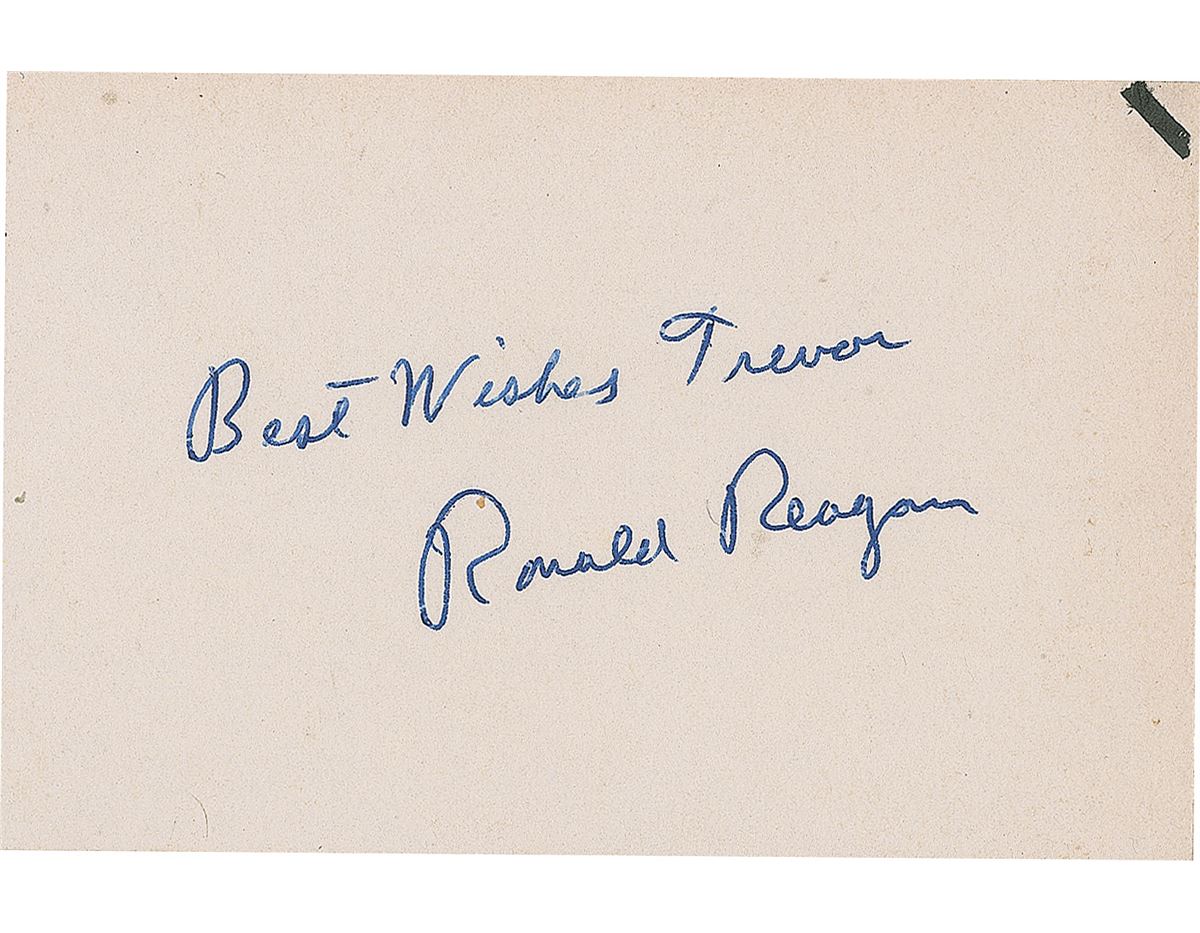 Best Wishes Trevor
Ronald Reagan